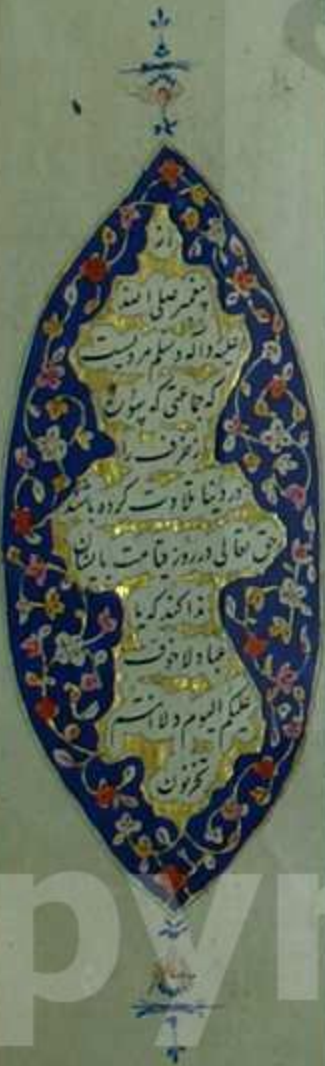 از
پیغمبر صلی الله
علیه و آله و سلم مرویست
که جماعتی که سوره
زخرف را
در دنیا تلاوت کرده باشند
حق تعالی در روز قیامت بایشان
ندا کند که یا
عباد لا خوف
علیکم الیوم و لا انتم
تحزنون
py